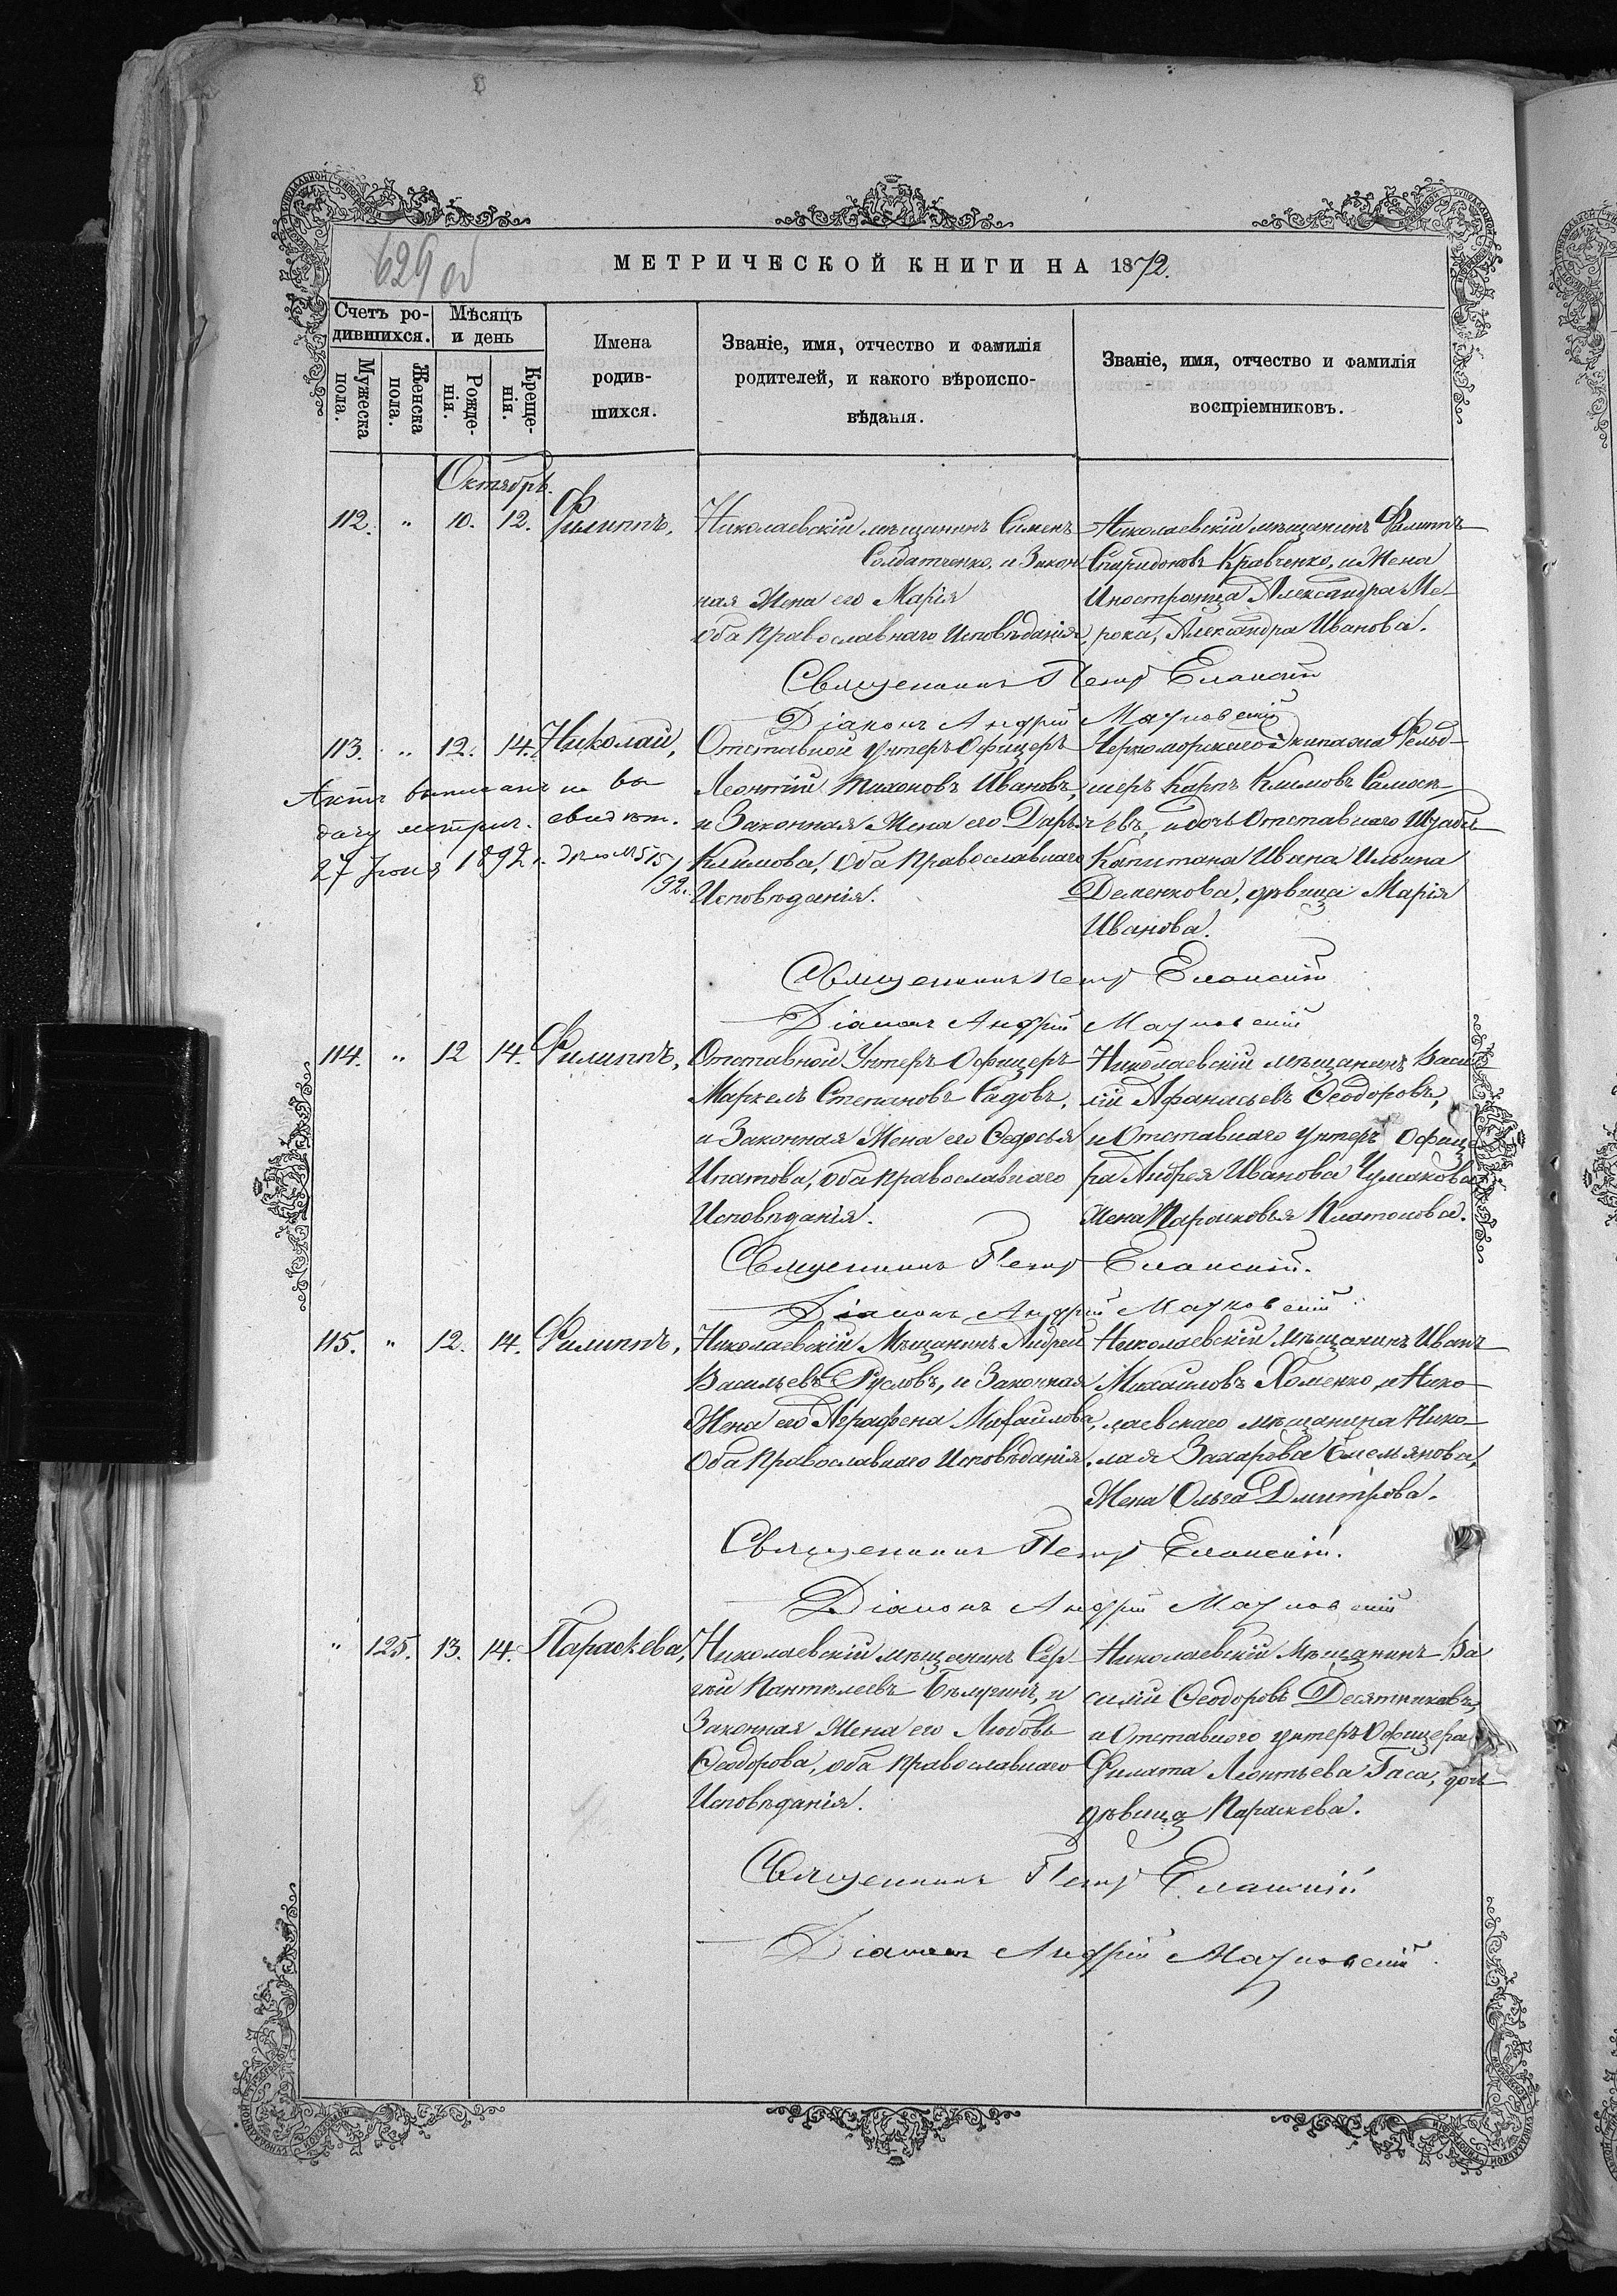 629 об
МЕТРИЧЕСКОЙ КНИГИ НА 1872.
Счетъ ро-
дившихся.
Мѣсяцъ
и день
Мужеска
пола.
Женска
пола.
Рожде-
нія.
Креще-
нія.
Имена
родив-
шихся.
Званіе, имя, отчество и фамилія
родителей, и какого вѣроиспо-
вѣданія.
Званіе, имя, отчество и фамилія
воспріемниковъ.
Октябрь.
112. " 10. 12. Филиппъ,
Николаевскій мѣщанинъ Сименъ
Солдатченко, и Закон
ная Жена его Марія
оба Православнаго Исповѣданія,
Николаевскій мѣщанинъ Филиппъ
Спиридоновъ Кравченко, и Жена
Иностранца Александра Ме-
рока, Александра Иванова.
Священникъ Петр Еланскій
Діаконъ Андрій
113. " 12. 14. Николай,
Актъ выписанъ на вы
дачу метрич. свидѣт.
27 Іюня 1892 г. дѣло № 515/
92.
Отставной Унтеръ Офицеръ
Леонтій Тихоновъ Ивановъ,
и Законная Жена его Дарья
Климова, Оба Православнаго
Исповѣданія.
Черноморскаго Экипажа Фельд-
шеръ Карпъ Климовъ
евъ, и дочь Отставнаго Штабсъ
Капитана Ивана Ильина
Деменкова, дѣвица Марія
Иванова.
Священникъ Петр Еланскій
Діаконъ Андрій
114. " 12 14. Филиппъ,
Отставной Унтеръ Офицеръ
Маркелъ Степановъ Садовъ,
и Законная Жена его Федосья
Ипатова, оба Православнаго
Исповѣданія.
Николаевскій мѣщанинъ Васи
лій Афанасьевъ Феодоровъ,
и Отставнаго Унтеръ Офице
ра Андрея Иванова Чумакова
Жена Парасковья Платонова.
Священникъ Петр Еланскій.
Діаконъ Андрій
115. " 12. 14. Филиппъ,
Николаевскій Мѣщанинъ Андрей
Васильевъ Русловъ, и Законная
Жена его Аграфена Михайлова,
Оба Православнаго Исповѣданія.
Николаевскій мѣщанинъ Иванъ
Михайловъ Хоменко, и Нико
лаевскаго мѣщанина Нико-
лая Захарова Емельянова,
Жена Ольга Дмитрова.
Священникъ Петр Еланскій.
Діаконъ Андрій
" 125. 13. 14. Параскева,
Николаевскій мѣщанинъ Сер-
гѣй Пантелеевъ и
Законная Жена его Любовь
Феодорова, оба Православнаго
Исповѣданія.
Николаевскій Мѣщанинъ Ва
силій Феодоровъ Десятниковъ,
и Отставного унтеръ Офицера
Филата Леонтьева Гаса, дочь
дѣвица Параскева.
Священникъ Петр Еланскій
Діаконъ Андрій